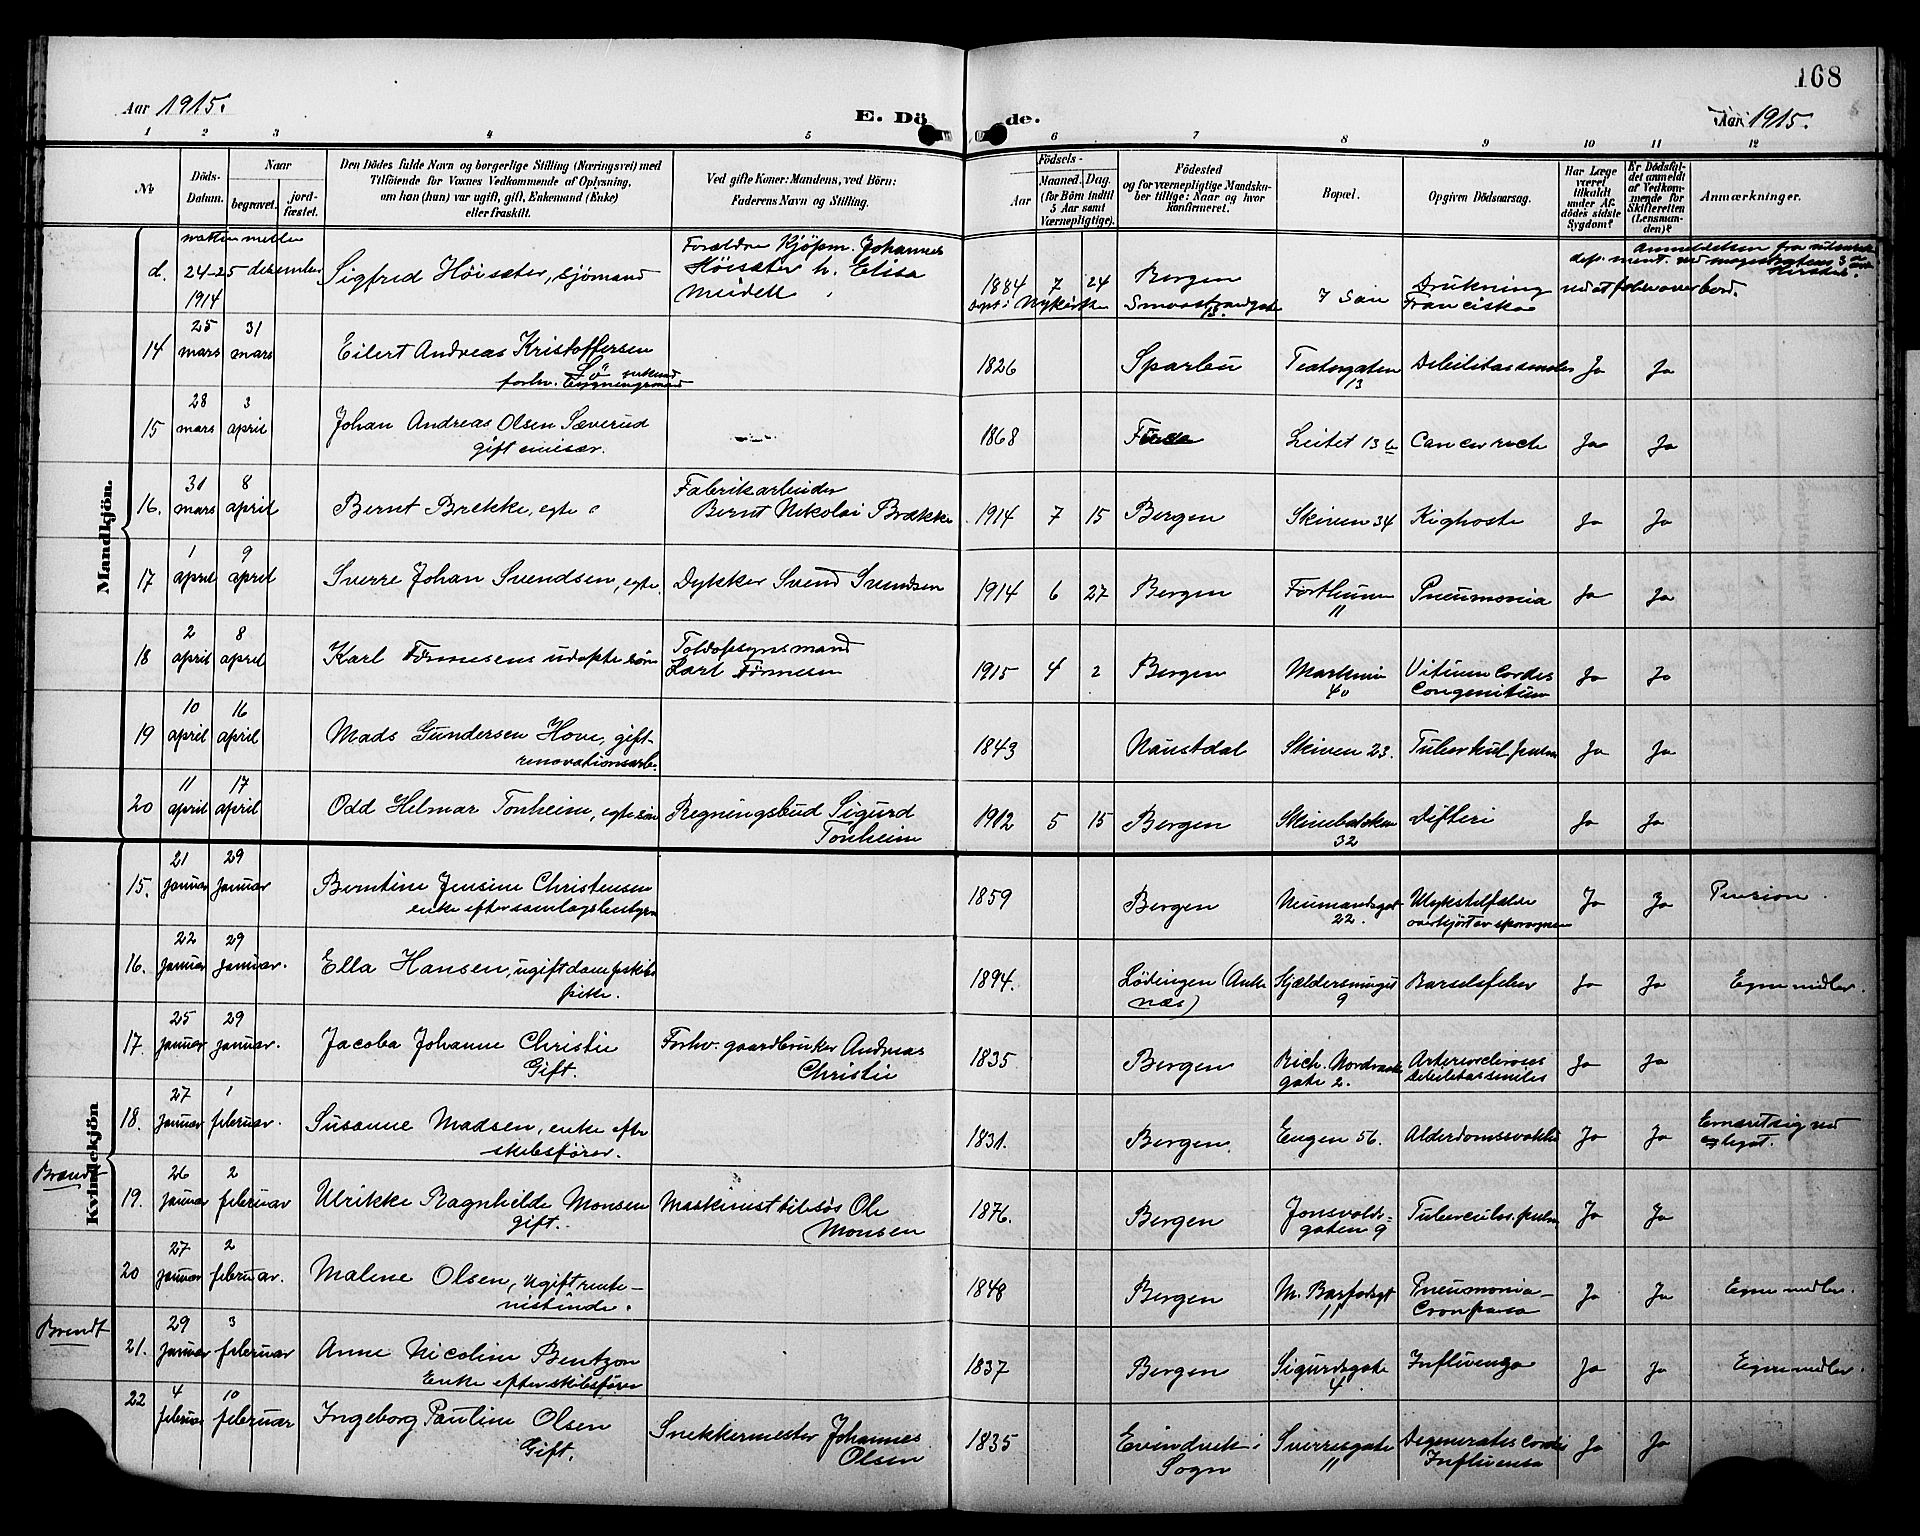 168
Aar 1915.
E. Dö de.
Aar 1915.
1 2 3 4 5 6 7 8 9 10 11 12
No
Döds-Datum.
Naar
begravet.
jord-fæstet.
Den Dödes fulde Navn og borgerlige Stilling (Næringsvei) med
Tilföiende for Voxnes Vedkommende af Oplysning,
om han (hun) var ugift, gift, Enkemand (Enke)
eller fraskilt.
Ved gifte Koner: Mandens, ved Börn:
Faderens Navn og Stilling.
Födsels-
Aar
Maaned. Dag.
(for Börn indtil
5 Aar samt
Værnepligtige).
Födested
og for værnepligtige Mandska-
ber tillige: Naar og hvor
konfirmeret.
Bopæl.
Opgiven Dödsaarsag.
Har Læge
været
tilkaldt
under Af-
dödes sidste
Sygdom?
Er Dödsfal-
det anmeldt
af Vedkom-
mende for
Skifteretten
(Lensman-
den)?
Anmærkninger.
Mandkjön.
d. natten mellem 24-25 desember 1914
Sigfred Höisæter, sjömand
Forældre Kjöpm. Johannes
Höisæter h. Elisa
Meidell
1884 7 24
døpt i Nykirken
Bergen
Smaastrandgate 13
Drukning
Francisko
ved at falde over bord.
14 25 mars 31 mars
Eilert Andreas Kristoffersen
forhv. bygningsmand
1826 Sparbu Teatergaten 13 Debilitas senilis Ja Ja
15 28 mars 3 april
Johan Andreas Olsen Sæverud
gift emisær.
1868 Leitet 13 b Cancer recti Ja Ja
16. 31 mars 8 april
Bernt Brekke, egte
Fabrikarbeider
Bernt Nikolai Brække
1914 7 15 Bergen Skiven 34 Kighoste Ja Ja
17 1 april 9 april
Sverre Johan Svendsen, egte.
Dykker Svend Svendsen
1914 6 27 Bergen 11 Pneumonia Ja Ja
18 2 april 8 april
Karl Tørmesens udøpte søn
Toldopsynsmand
Karl Tørmesen
1915 4 2 Bergen Markeveien 40 Vitium Cordis
Congenitum Ja Ja
19 10 april 16 april
Mads Gundersen Hove, gift
renovationsarb.
1843 Naustdal Skiven 23. Tuberkul. pulm Ja Ja
20 11 april 17 april
Odd Helmar Tonheim, egte søn
Regningsbud Sigurd
Tonheim
1912 5 15 Bergen Skivebakken 32 Difteri Ja Ja
Kvindekjön
15. 21 januar 29 januar
Berntine Jensine Christensen
enke efter samlagsbestyrer
1859 Bergen Neumandsgt 22. Ulykstilfælde
overkjørt av sporvognen Ja Ja Pension.
16. 22 januar 29 januar.
Ella Hansen, ugift dampskibs
pike.
1894. Lødingen (Ankenæs) Kjældersmuget 9 Barselfeber Ja Ja Egne midler.
17. 25 januar 29 januar.
Jacoba Johanne Christie
Gift.
Forhv. gaardbruker Andreas
Christie
1835 Bergen Rich. Nordraaks
gate 2. Arteriosclerosis
debilitas senilis Ja Ja
18. 27 januar 1 februar.
Susanne Madsen, enke efter
skibsfører.
1831. Bergen. Engen 56. Alderdomssvakhed Ja Ja Ernæret sig ved
legat.
Brandt
19. 26 januar 2 februar
Ulrikke Ragnhilde Monsen
gift.
Maskinist tilsjøs Ole
Monsen
1876. Bergen Jonsvolds-
gaten 9 Tuberculos. pulm Ja Ja
20 27 januar 2 februar.
Malene Olsen, ugift rente-
nistinde.
1848 Bergen M. Barfodsgt 11 Pneumonia-
Crouposa Ja Ja Egne midler.
Brandt
21. 29 januar 3 februar
Anne Nicoline Bentzon
Enke efter skibsfører
1837 Bergen Sigurdsgate 4 Influenza Ja Ja Egne midler.
22 4 februar 10 februar
Ingeborg Pauline Olsen
Gift.
Snekkermester Johannes
Olsen
1835 Evindvik i
Sogn Sverresgate 11 Degeneratio Cordis
Influensa Ja Ja